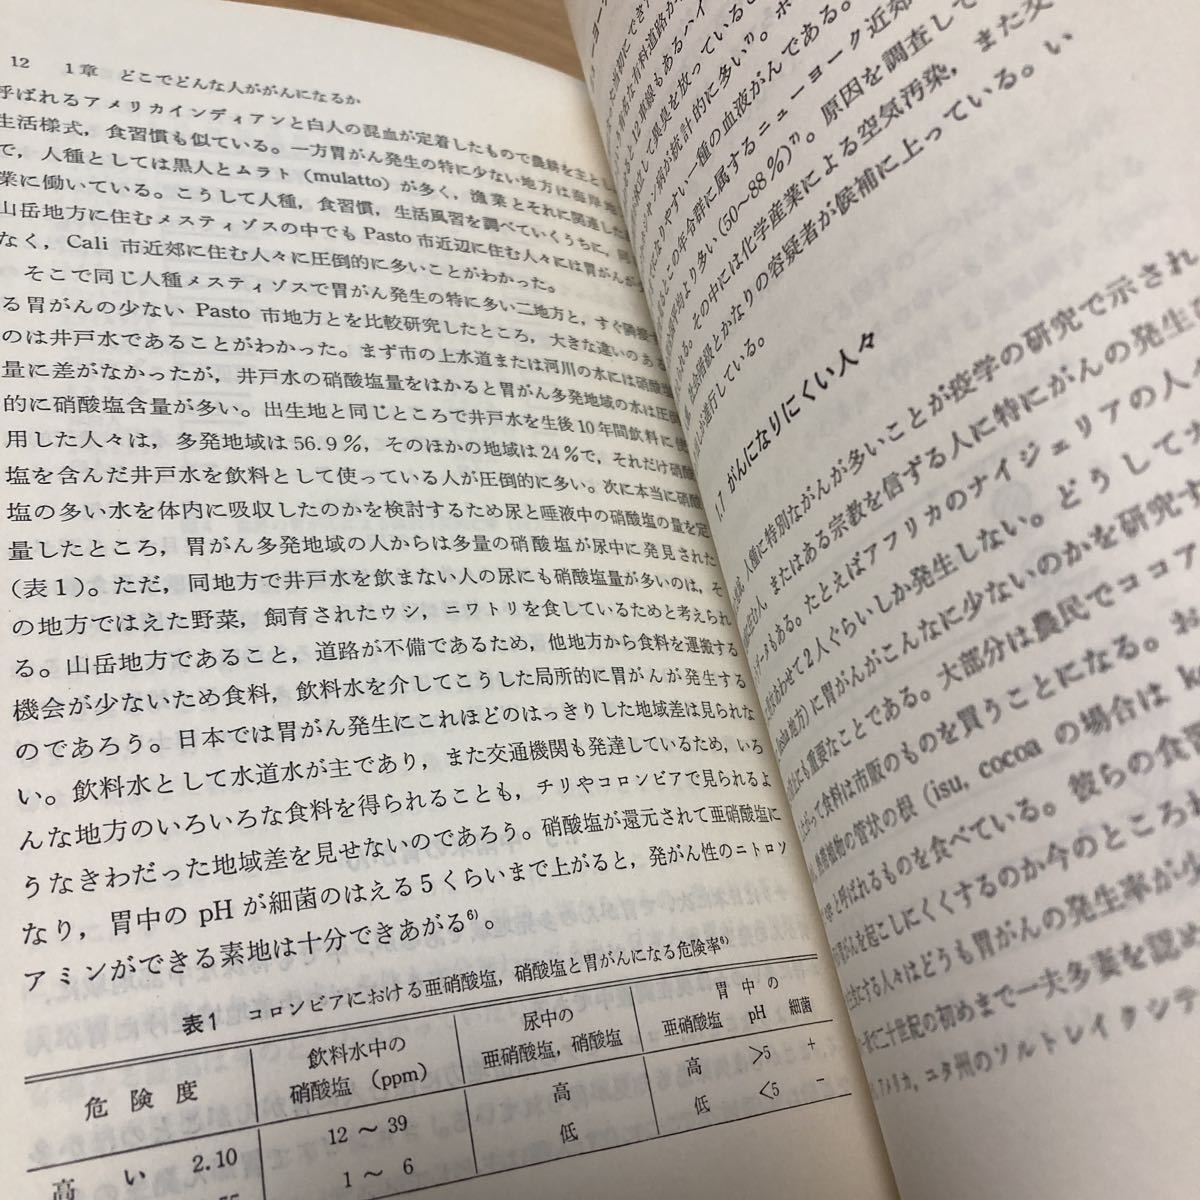 12　1章　どこでどんな人ががんになるか
呼ばれるアメリカインディアンと白人の混血が定着したもので農耕を主とし
生活様式，食習慣も似ている。一方胃がん発生の特に少ない地方は海岸地
で，人種としては黒人とムラト（mulatto）が多く，漁業とそれに関連した
業に働いている。こうして人種，食習慣，生活風習を調べていくうちに，同
山岳地方に住むメスティゾスの中でも Pasto 市近辺に住む人々には胃がんが
なく，Cali 市近郊に住む人々に圧倒的に多いことがわかった。
そこで同じ人種メスティゾスで胃がん発生の特に多い二地方と，すぐ隣接
る胃がんの少ない Pasto 市地方とを比較研究したところ，大きな違いのあ
のは井戸水であることがわかった。まず市の上水道または河川の水には硝酸塩
量に差がなかったが，井戸水の硝酸塩量をはかると胃がん多発地域の水は圧倒
的に硝酸塩含量が多い。出生地と同じところで井戸水を生後10年間飲料に使
用した人々は，多発地域は56.9％，そのほかの地域は24％で，それだけ硝酸
塩を含んだ井戸水を飲料として使っている人が圧倒的に多い。次に本当に硝酸
塩の多い水を体内に吸収したのかを検討するため尿と唾液中の硝酸塩の量を定
量したところ，胃がん多発地域の人からは多量の硝酸塩が尿中に発見された
（表1）。ただ，同地方で井戸水を飲まない人の尿にも硝酸塩量が多いのは，そ
の地方ではえた野菜，飼育されたウシ，ニワトリを食しているためと考えられ
る。山岳地方であること，道路が不備であるため，他地方から食料を運搬する
機会が少ないため食料，飲料水を介してこうした局所的に胃がんが発生する
のであろう。日本では胃がん発生にこれほどのはっきりした地域差は見られな
い。飲料水として水道水が主であり，また交通機関も発達しているため，いろ
んな地方のいろいろな食料を得られることも，チリやコロンビアで見られるよ
うなきわだった地域差を見せないのであろう。硝酸塩が還元されて亜硝酸塩に
なり，胃中の pH が細菌のはえる5くらいまで上がると，発がん性のニトロソ
アミンができる素地は十分できあがる⁶⁾。
表1　コロンビアにおける亜硝酸塩，硝酸塩と胃がんになる危険率⁶⁾
危険度　飲料水中の硝酸塩（ppm）　尿中の亜硝酸塩，硝酸塩　胃中の亜硝酸塩　pH　細菌
高い　2.10　12～39　高　高　>5　+
55　1～6　低　低　<5　−
た有名な有料道路が
ると12車線もあるハイ
が林立して異臭を放っていること
ジキン病が統計的に多い⁷⁾。
になりやすい一種の血液がんである。
るとこの年令群に属するニューヨーク近郊
全国平均より多い（50～88％）⁷⁾。原因を調査して
られる。その中には化学産業による空気汚染，また交
，社会階級とかなりの容疑者が候補に上っている。い
が進行している。
1.7　がんになりにくい人々
人種に特別ながんが多いことが疫学の研究で示され
に住む人，またはある宗教を信ずる人に特にがんの発生
データもある。たとえばアフリカのナイジェリアの人々
あわせて2人ぐらいしか発生しない。どうして
地方）に胃がんがこんなに少ないのかを研究す
にも重要なことである。大部分は農民でココア
がって食料は市販のものを買うことになる。お
，熱帯植物の管状の根（isu, cocoa の場合は
と呼ばれるものを食べている。彼らの食習
胃がんを起こしにくくするのか今のところ
に住む人々はどうも胃がんの発生率が少
二十世紀の初めまで一夫多妻を認め
アメリカ，ユタ州のソルトレイクシテ